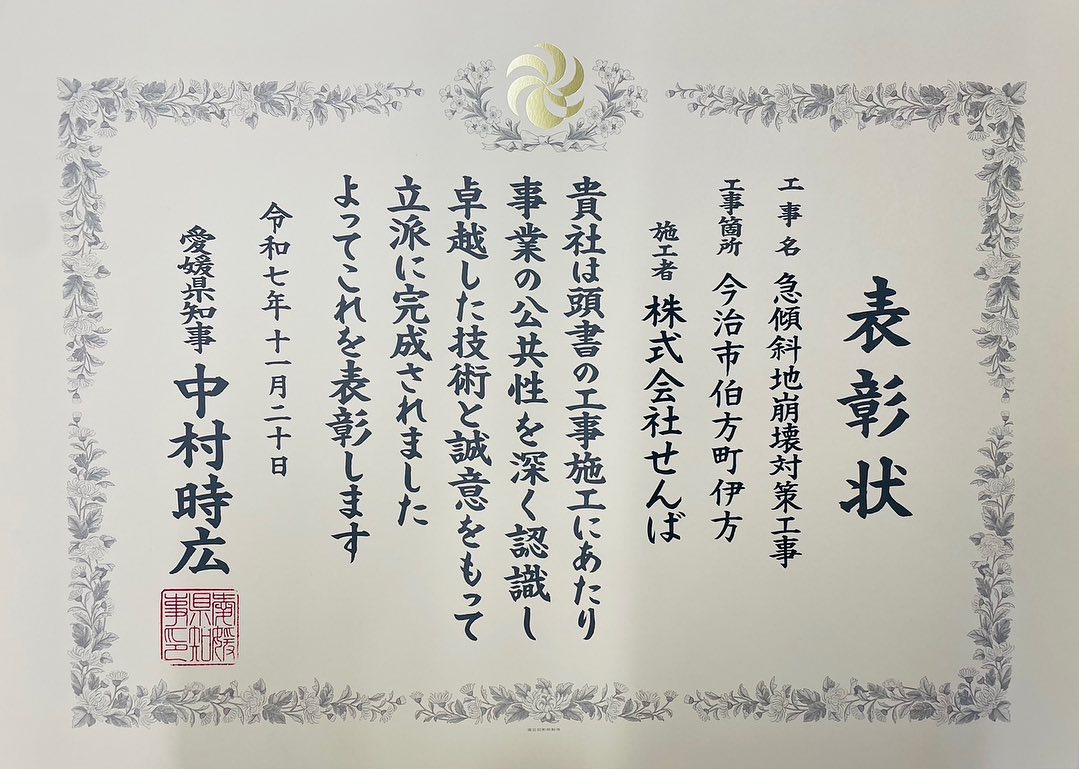 表彰状
工事名 急傾斜地崩壊対策工事
工事箇所 今治市伯方町伊方
施工者 株式会社せんば
貴社は頭書の工事施工にあたり
事業の公共性を深く認識し
卓越した技術と誠意をもって
立派に完成されました
よってこれを表彰します
令和七年十一月二十日
愛媛県知事 中村時広
愛媛県知事印